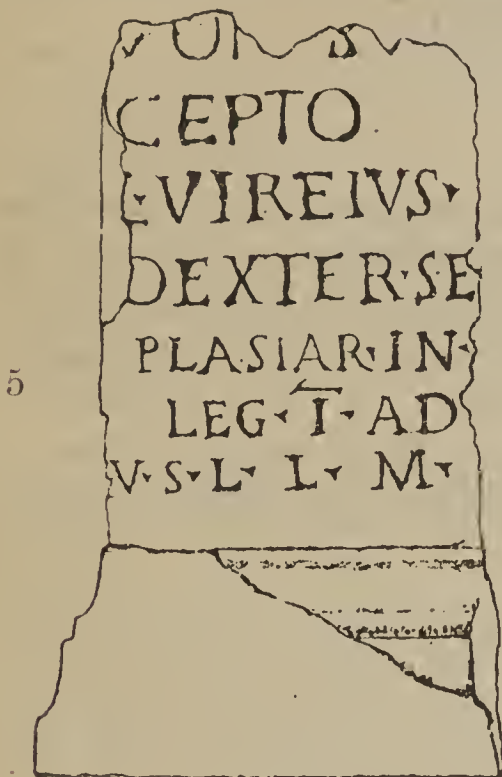 CEPTO
L·VIREIVS·
DEXTER·SE
PLASIAR·IN·
5 LEG·Ī·AD
V·S·L·L·M·